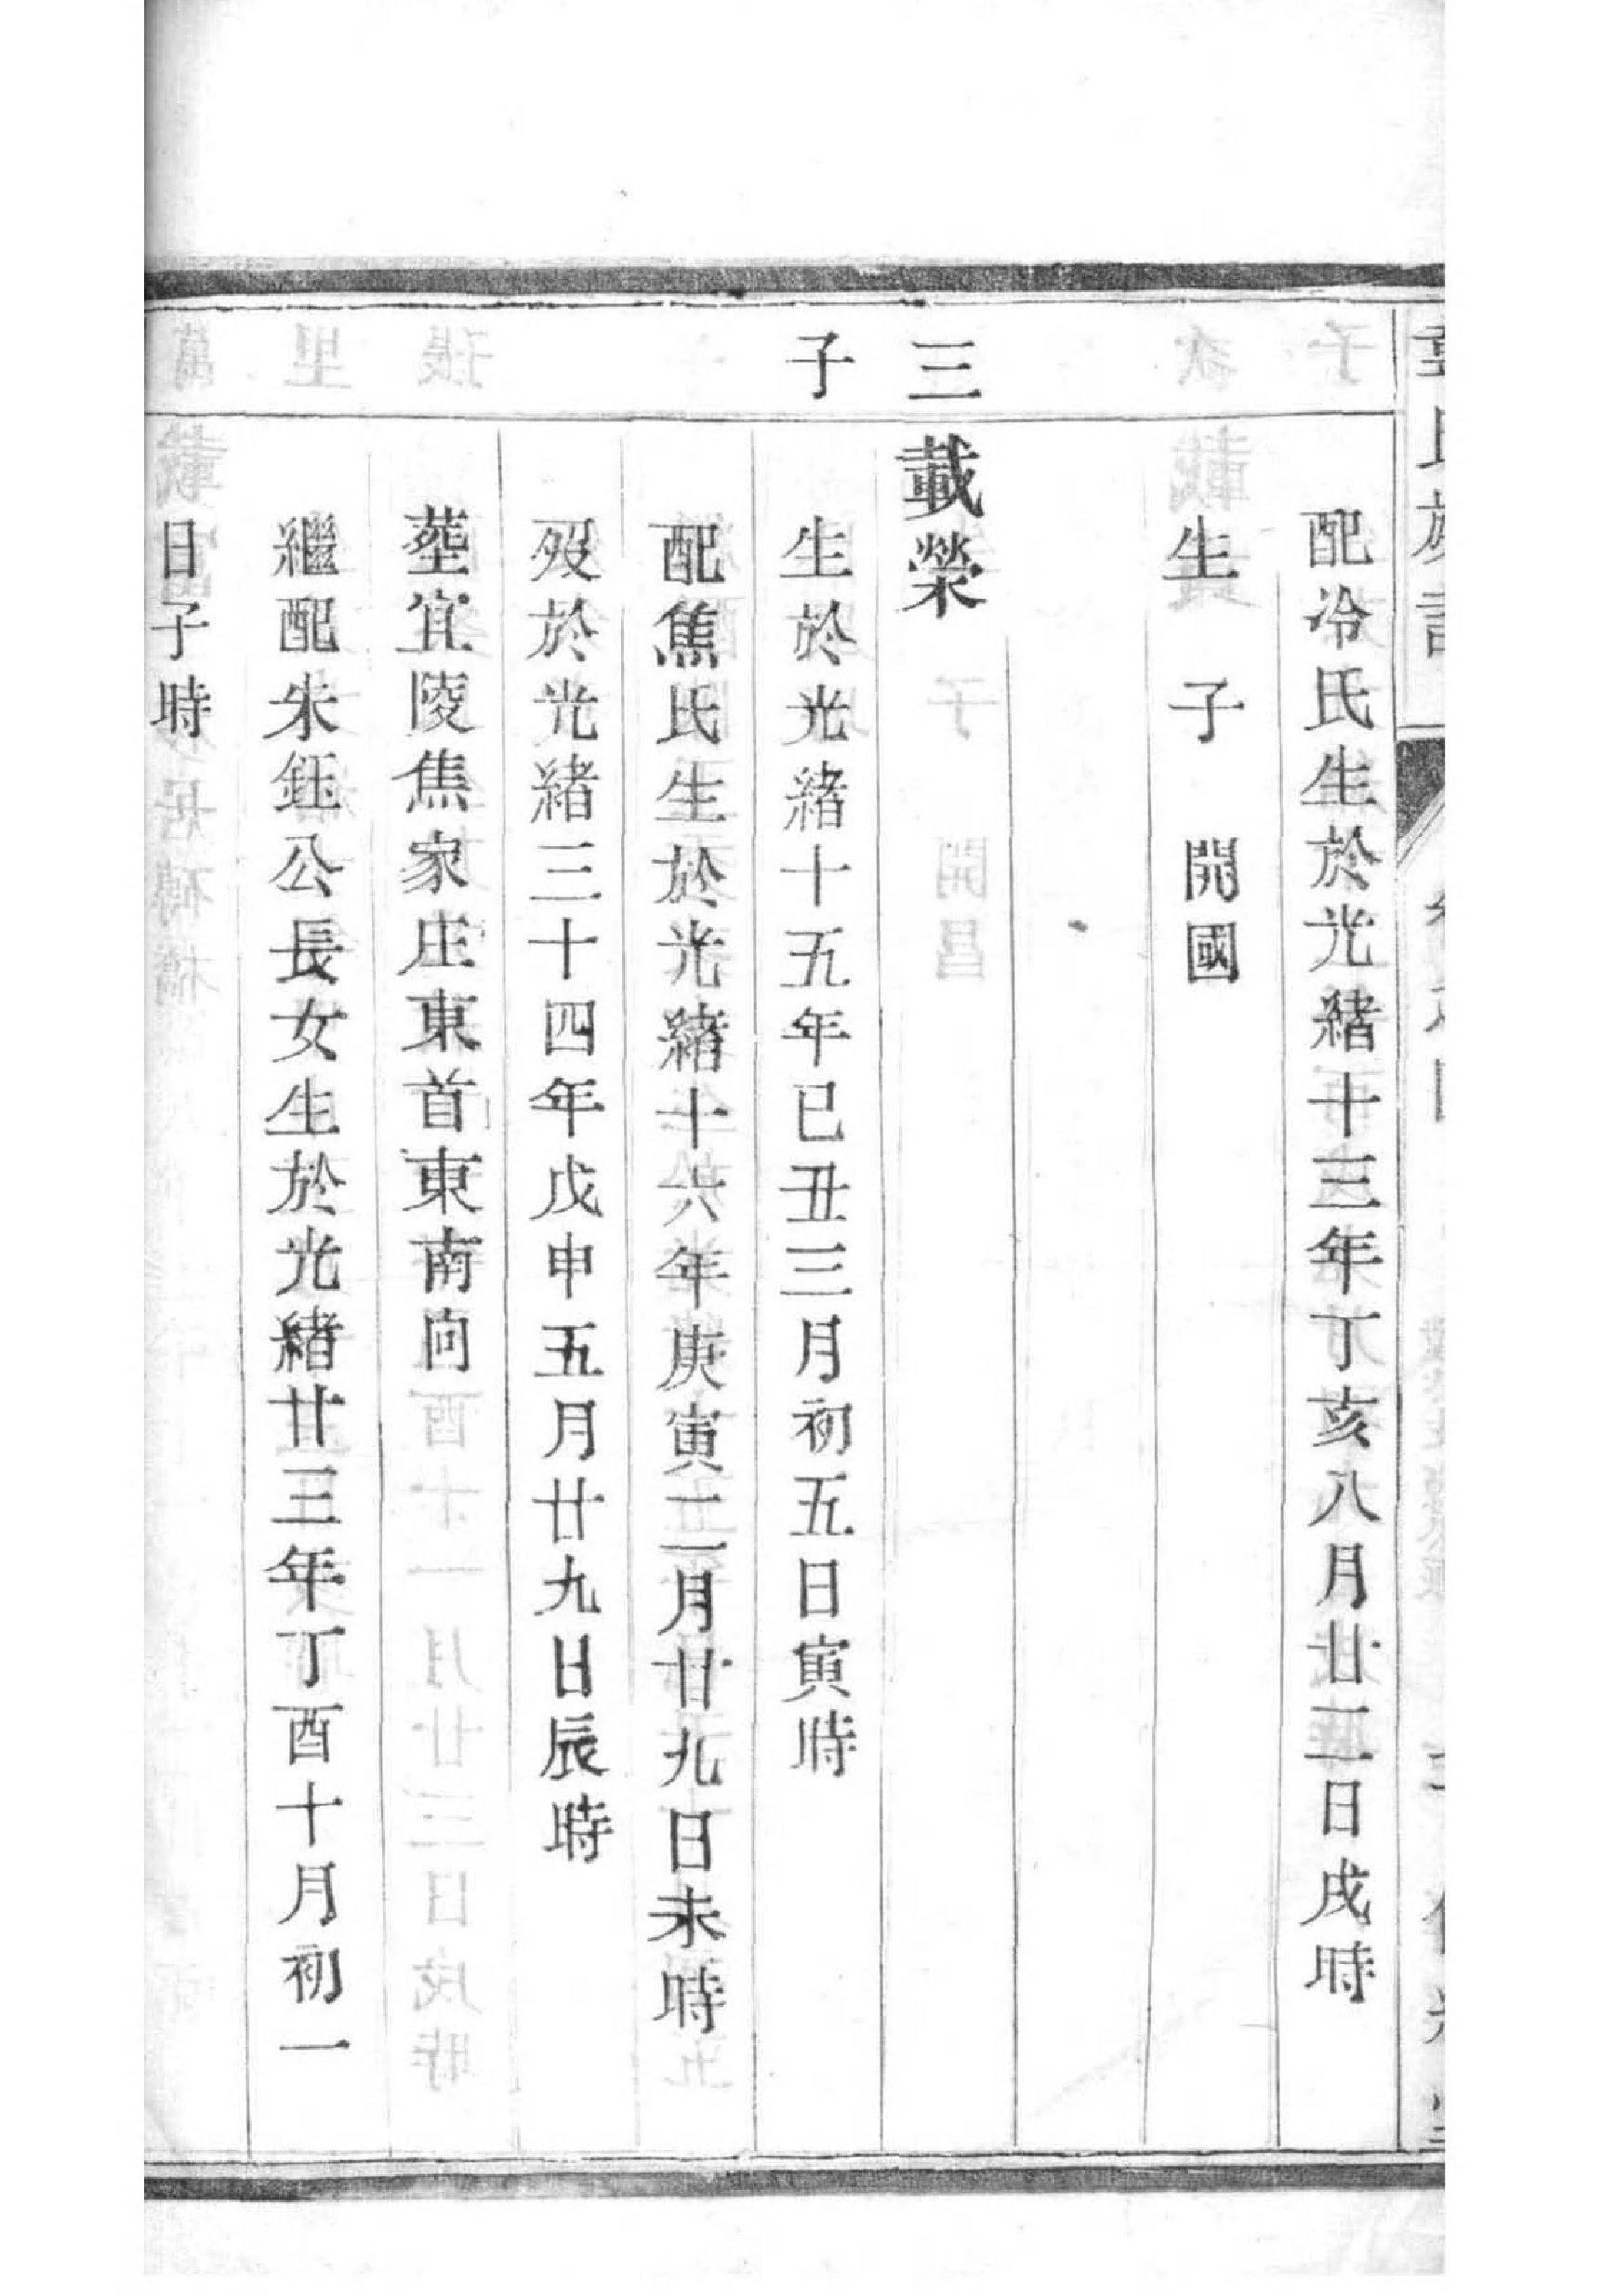 配冷氏生於光緒十三年丁亥八月廿二日戌時
生子開國
三子
載榮
生於光緒十五年已丑三月初五日寅時
配焦氏生於光緒十六年庚寅二月廿九日未時
歿於光緒三十四年戊申五月廿九日辰時
塟宜陵焦家庄東首東南向
繼配朱鈺公長女生於光緒廿三年丁酉十月初一
日子時